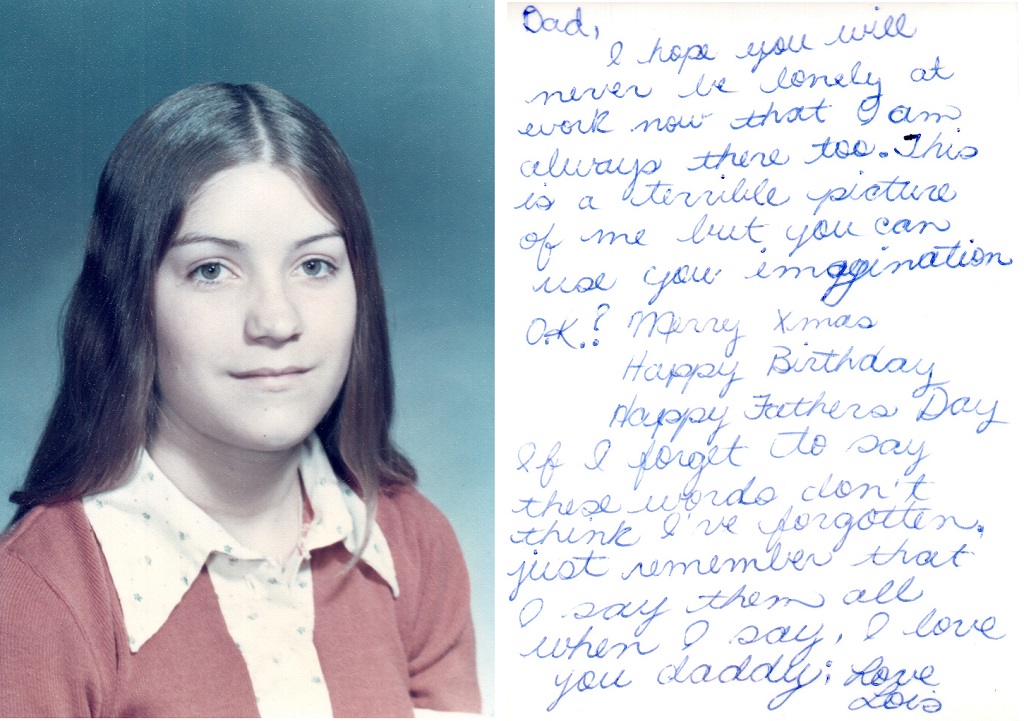 Dad,
I hope you will
never be lonely at
work now that I am
always there too. This
is a terrible picture
of me but you can
use your imagination
O.K.? Merry Xmas
Happy Birthday
Happy Fathers Day
If I forget to say
these words don't
think I've forgotten.
just remember that
I say them all
when I say, I love
you daddy; Love
Lois